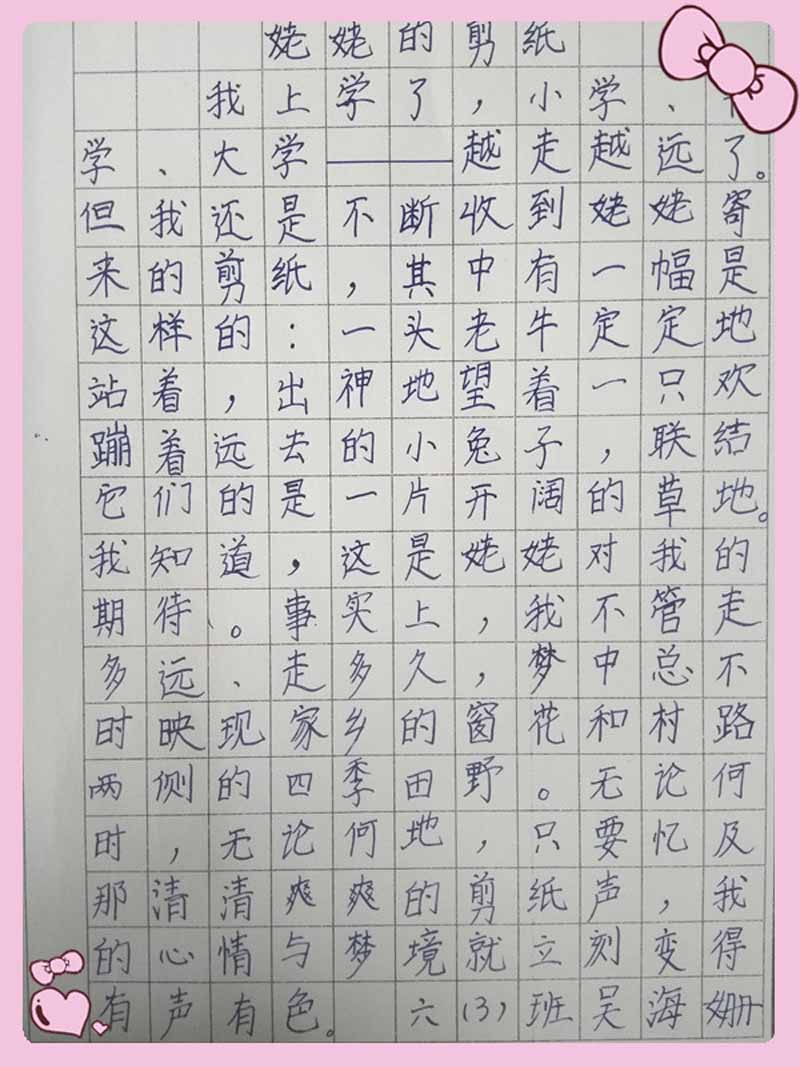 姥姥的剪纸
我上学了，小学、
学、大学——越走越远了。
但我还是不断收到姥姥寄
来的剪纸，其中有一幅是
这样的：一头老牛定定地
站着，出神地望着一只欢
蹦着远去的小兔子，联结
它们的是一片开阔的草地。
我知道，这是姥姥对我的
期待。事实上，我不管走
多远、走多久，梦中总不
时映现家乡的窗花和村路
两侧的四季田野。无论何
时，无论何地，只要忆及
那清清爽爽的剪纸声，我
的心情与梦境就立刻变得
有声有色。 六(3)班吴海姗